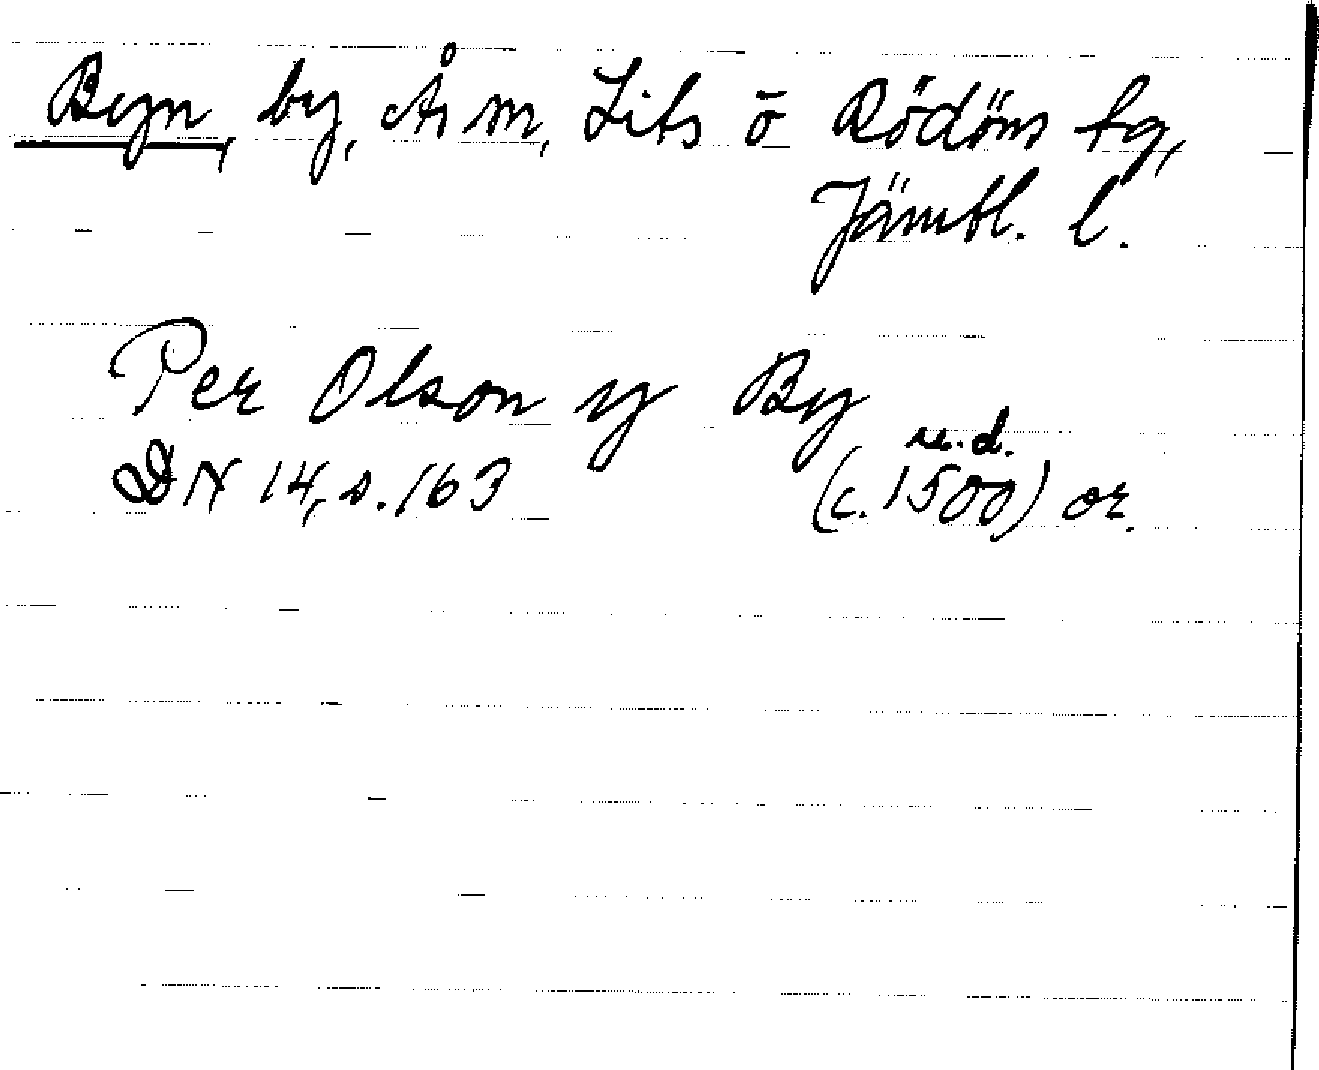 Byn, by, Ås sn, Lits o Rödöns tg,
Jämtl. l.
Per Olson y By
u.d.
DN 14, s. 163 (c. 1500) or.